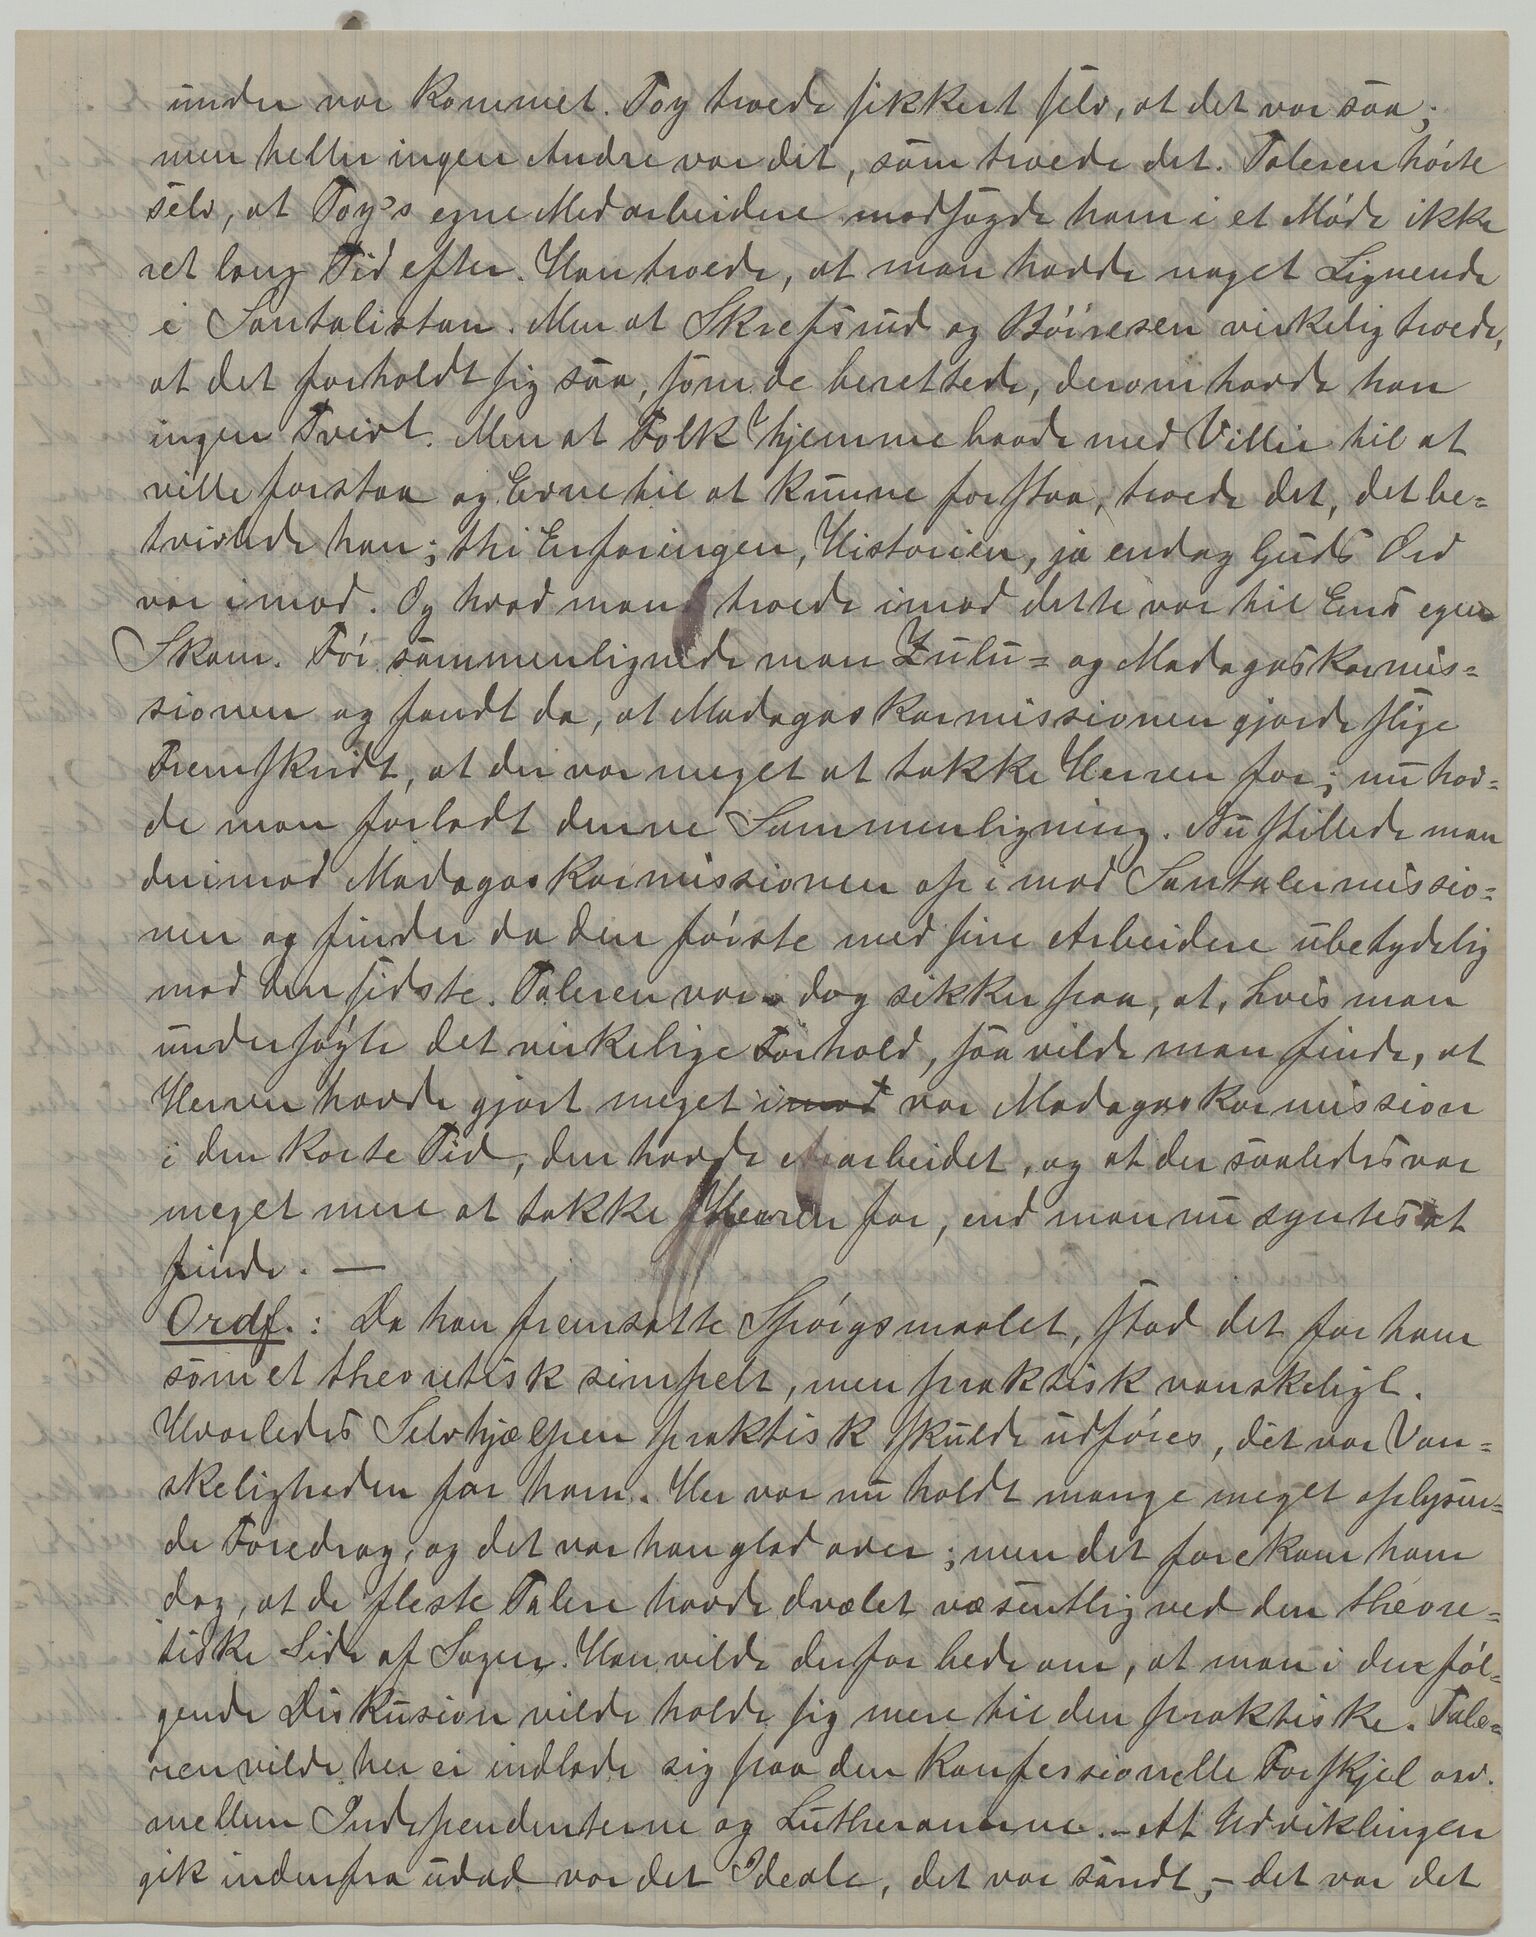 under var kommet. Toy troede sikkert selv, at det var saa;
men heller ingen Andre var det, som troede det. Taleren hørte
selv, at Toy's egne Medarbeidere modsagde ham i et Møde ikke
ret lang Tid efter. Han troede, at man havde noget Lignende
i Santalistan. Men at Skrefsrud og Bøiresen virkelig troede,
at det forholdt sig saa, som de berettede, derom havde han
ingen Tvivl. Men at Folk hjemme baade med Villie til at
ville forstaa og Evne til at kunne forstaa, troede det, det be-
tvivlede han; thi Erfaringen, Historien, ja endog Guds Ord
var imod. Og hvad man troede imod dette var til Ens egen
Skam. Før sammenlignede man Zulu- og Madagaskarmis-
sionen og fandt da, at Madagaskarmissionen gjorde slige
Fremskridt, at der var meget at takke Herren for; nu hav-
de man forladt denne Sammenligning. Nu stillede man
derimod Madagaskarmissionen op imod Santalermissio-
nen og finder da den første med sine Arbeidere ubetydelig
mod den sidste. Taleren var dog sikker paa, at, hvis man
undersøgte det virkelige Forhold, saa vilde man finde, at
Herren havde gjort meget imod vor Madagaskarmission
i den korte Tid, den havde arbeidet, og at der saaledes var
meget mere at takke Herren for, end man nu syntes at
finde. —
Ordf.: Da han fremsatte Spørgsmaalet, stod det for ham
som et theoretisk simpelt, men praktisk vanskeligt.
Hvorledes Selvhjælpen praktisk skulde udføres, det var Van-
skeligheden for ham. Her var nu holdt mange meget oplysen-
de Foredrag, og det var han glad over; men det forekom ham
dog, at de fleste Talere havde dvælet væsentlig ved den theore-
tiske Side af Sagen. Han vilde derfor bede om, at man i den føl-
gende Diskusion vilde holde sig mere til den praktiske. Tale-
ren vilde her ei indlade sig paa den konfessionelle Forskjel osv.
mellem Independenterne og Lutheranerne. – At Udviklingen
gik indenfra udad var det Ideale, det var sandt, – det var det